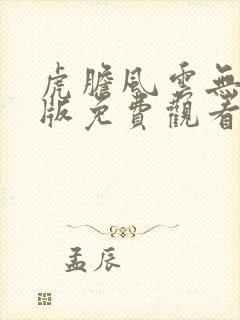 虎膽風雲無
版免費觀看
孟辰